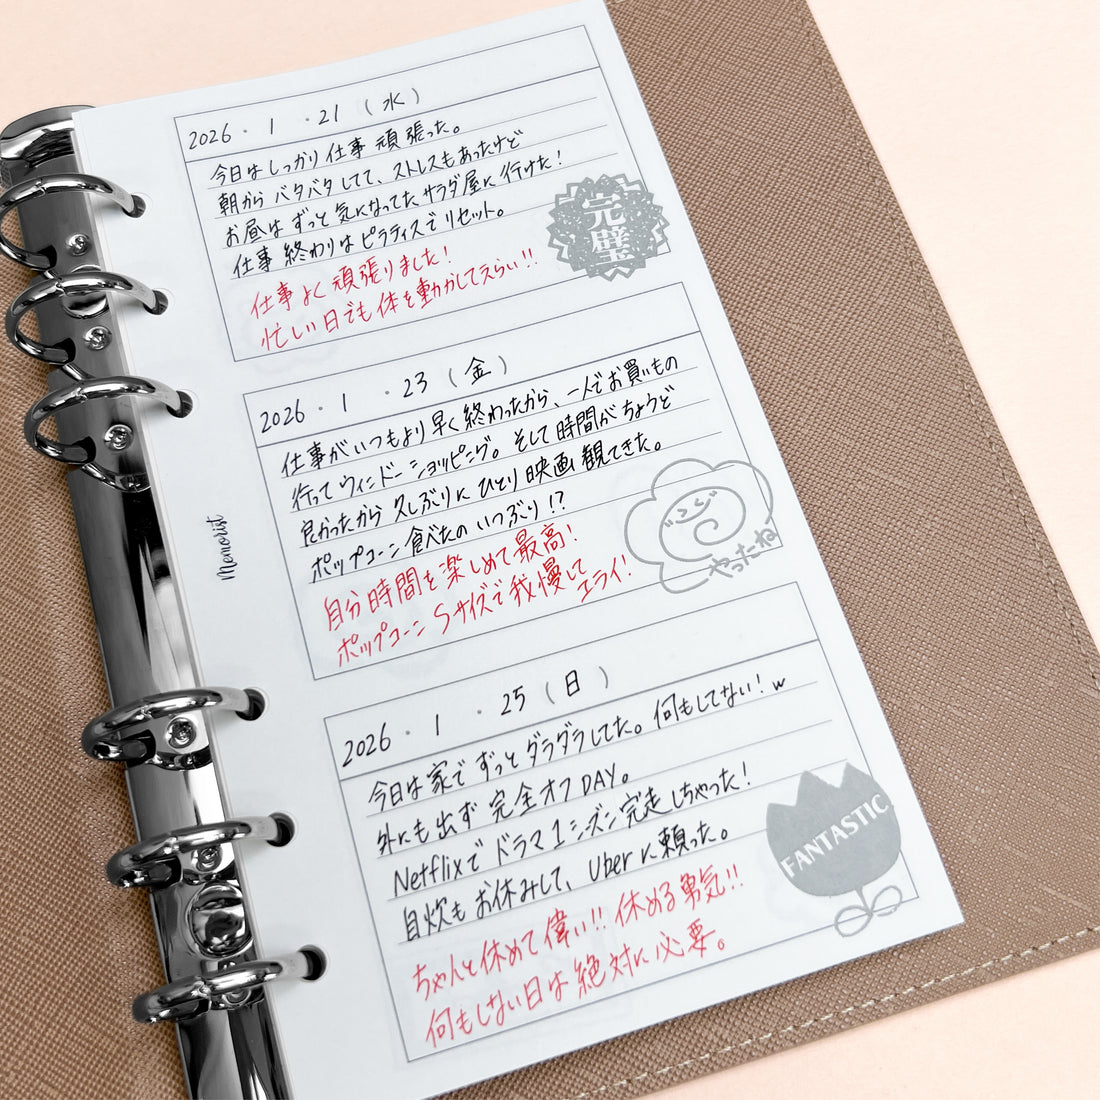 2026・1・21(水)
今日はしっかり仕事頑張った。
朝からバタバタしてて、ストレスもあったけど
お昼はずっと気になってたサラダ屋に行けた!
仕事終わりはピラティスでリセット。
仕事よく頑張りました!
忙しい日でも体を動かしてえらい!!
完璧
2026・1・23(金)
仕事がいつもより早く終わったから、一人でお買いもの
行ってウィンドーショッピング。そして時間がちょうど
良かったから久しぶりにひとり映画観てきた。
ポップコーン食べたのいつぶり!?
自分時間を楽しめて最高!
ポップコーンSサイズで我慢して
エライ!
やったね
2026・1・25(日)
今日は家でずっとダラダラしてた。何もしてない!w
外にも出ず完全オフDAY。
Netflixでドラマ1シーズン完走しちゃった!
自炊もお休みして、Uberに頼った。
ちゃんと休めて偉い!!休める勇気!!
何もしない日は絶対に必要。
FANTASTIC
Memorist